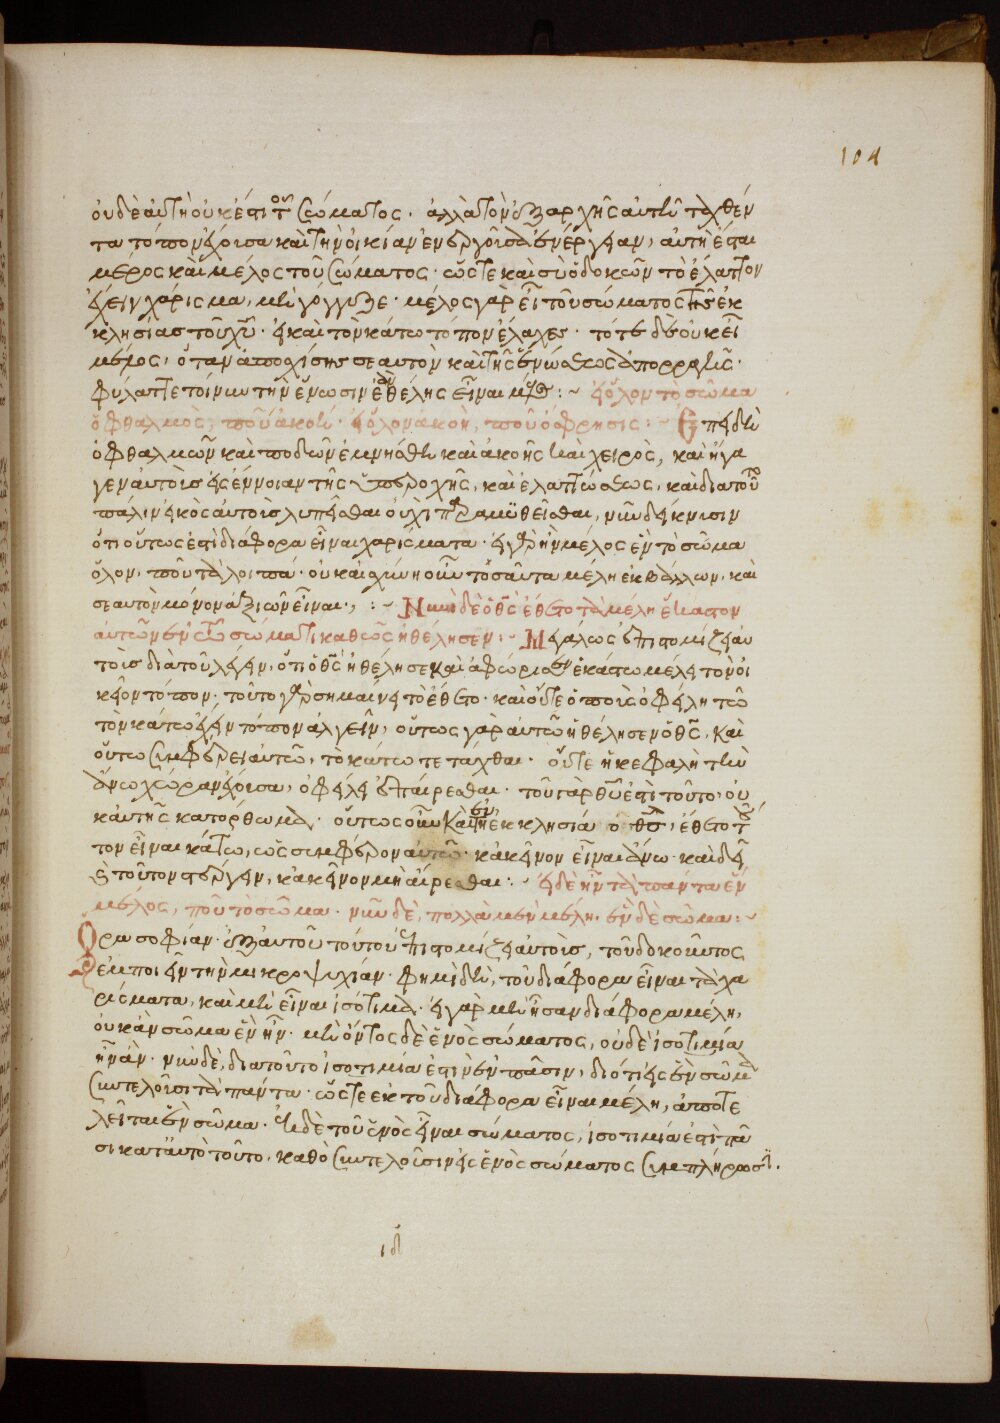 104
οὐδὲ αὕτη οὐκ ἔστι τοῦ σώματος. ἀλλὰ τὸν ἐξ ἀρχῆς αὐτῆ ταχθέν
τα τόπον ἔχουσα καὶ τὴν οἰκείαν ἐνεργοῦσα ἐνέργειαν, αὐτὴ ἐστι
μέρος καὶ μέλος τοῦ σώματος. ὥστε καὶ σὺ ὁ δοκῶν τὸ ἔλαττον
ἔχειν χάρισμα, μὴ γόγγυζε. μέλος γὰρ εἶ τοῦ σώματος τῆς ἐκ
κλησίας τοῦ χυ. εἰ καὶ τὸν κάτω τόπον ἔλαχες. τότε δὲ οὐκ εἶ
μέλος, ὅταν ἀποσχίσης σεαυτὸν καὶ τῆς ἑνώσεως ἀπορραγῆς.
φύλαττε τοίνυν τὴν ἕνωσιν ἐὰν θέλης εἶναι μέλος :~ εἰ ὅλον τὸ σῶμα
ὀφθαλμὸς, ποῦ ἡ ἀκοή. εἰ ὅλον ἀκοὴ, ποῦ ἡ ὄσφρησις :~ Ἐπειδὴ
ὀφθαλμῶν καὶ ποδῶν ἐμνήσθη καὶ ἀκοῆς καὶ χειρός, καὶ ἤγα
γεν αὐτοὺς εἰς ἔννοιαν τῆς ὑπεροχῆς, καὶ ἐλαττώσεως, καὶ διὰ τοῦτο
πάλιν εἰκὸς αὐτοὺς λυπεῖσθαι οὐχὶ παραμυθεῖσθαι, νῦν δείκνυσιν
ὅτι οὕτως ἔπι διάφορα εἶναι χαρίσματα. εἰ γὰρ ἦν μέλος ἓν τὸ σῶμα
ὅλον, ποῦ τὰ λοιπά. οὐκ αἰσχύνη οὖν τοσαῦτα μέλη ἐκβάλλων, καὶ
σεαυτὸν μόνον ἀξιῶν εἶναι., :~ Νυνὶ δὲ ὁ θς ἔθετο τὰ μέλη ἕκαστον
αὐτῶν ἐν τῶ σώματι καθὼς ἠθέλησεν :~ Μεγάλως ἐπιστομίζει αὐ
τοὺς διὰ τοῦ λέγειν, ὅτι ὁ θς ἠθέλησε καὶ ἀφώρισεν ἑκάστω μέλει τὸν οἰ
κεῖον τόπον. τοῦτο γὰρ σημαίνει τὸ ἔθετο. καὶ οὔτε ὁ ποὺς ὀφείλη τῶ
τὸν κάτω ἔχειν τόπον ἀλγεῖν, οὕτως γὰρ αὐτῶ ἠθέλησεν ὁ θς, καὶ
οὕτω συμφέρει αὐτῶ, τὸ κάτω τετάχθαι. οὔτε ἡ κεφαλὴ τὴν
ἄνω χώραν ἔχουσα, ὀφείλει ἐπαίρεσθαι. τοῦ γὰρ θυ ἐστὶ τοῦτο, οὐ
κ αὐτῆς κατόρθωμα. οὕτως οὖν καὶ ἐν τῆ ἐκκλησία ὁ θς, ἔθετο τοῦ
τον εἶναι κάτω, ὡς συμφέρον αὐτῶ. κἀκεῖνον εἶναι ἄνω. καὶ δεῖ
ὁ τοῦτον στέργειν, κἀκεῖνον μὴ αἴρεσθαι :~ εἰ δὲ ἦν τὰ πάντα ἓν
μέλος, ποῦ τὸ σῶμα. νῦν δὲ, πολλὰ μὲν μέλη, ἓν δὲ σῶμα :~
Ὅρα σοφίαν. ἐξ αὐτοῦ τούτου ἐπιστομίζει αὐτοὺς, τοῦ δοκοῦντος
ἐμποιεῖν τὴν μικροψυχίαν. φημὶ δὴ, τοῦ διάφορα εἶναι τὰ χα
ρίσματα, καὶ μὴ εἶναι ἰσότιμα. εἰ γὰρ μὴ ἦσαν διάφορα μέλη,
οὐκ ἂν σῶμα ἓν ἦν. μὴ ὄντος δὲ ἑνὸς σώματος, οὐδὲ ἰσοτιμία
ἦν ἄν. νῦν δὲ, διὰ τοῦτο ἰσοτιμία ἐστὶν ἐν πᾶσιν, διότι εἰς ἓν σῶμα
συντελοῦσι τὰ πάντα. ὥστε ἐκ τοῦ διάφορα εἶναι μέλη, ἀποτε
λεῖται ἓν σῶμα. ἐκ δὲ τοῦ ἑνὸς εἶναι σώματος, ἰσοτιμία ἐστὶ πᾶ
σι κατ' αὐτὸ τοῦτο. καθὸ συντελοῦσιν εἰς ἑνὸς σώματος συμπλήρωσιν.
ιδ